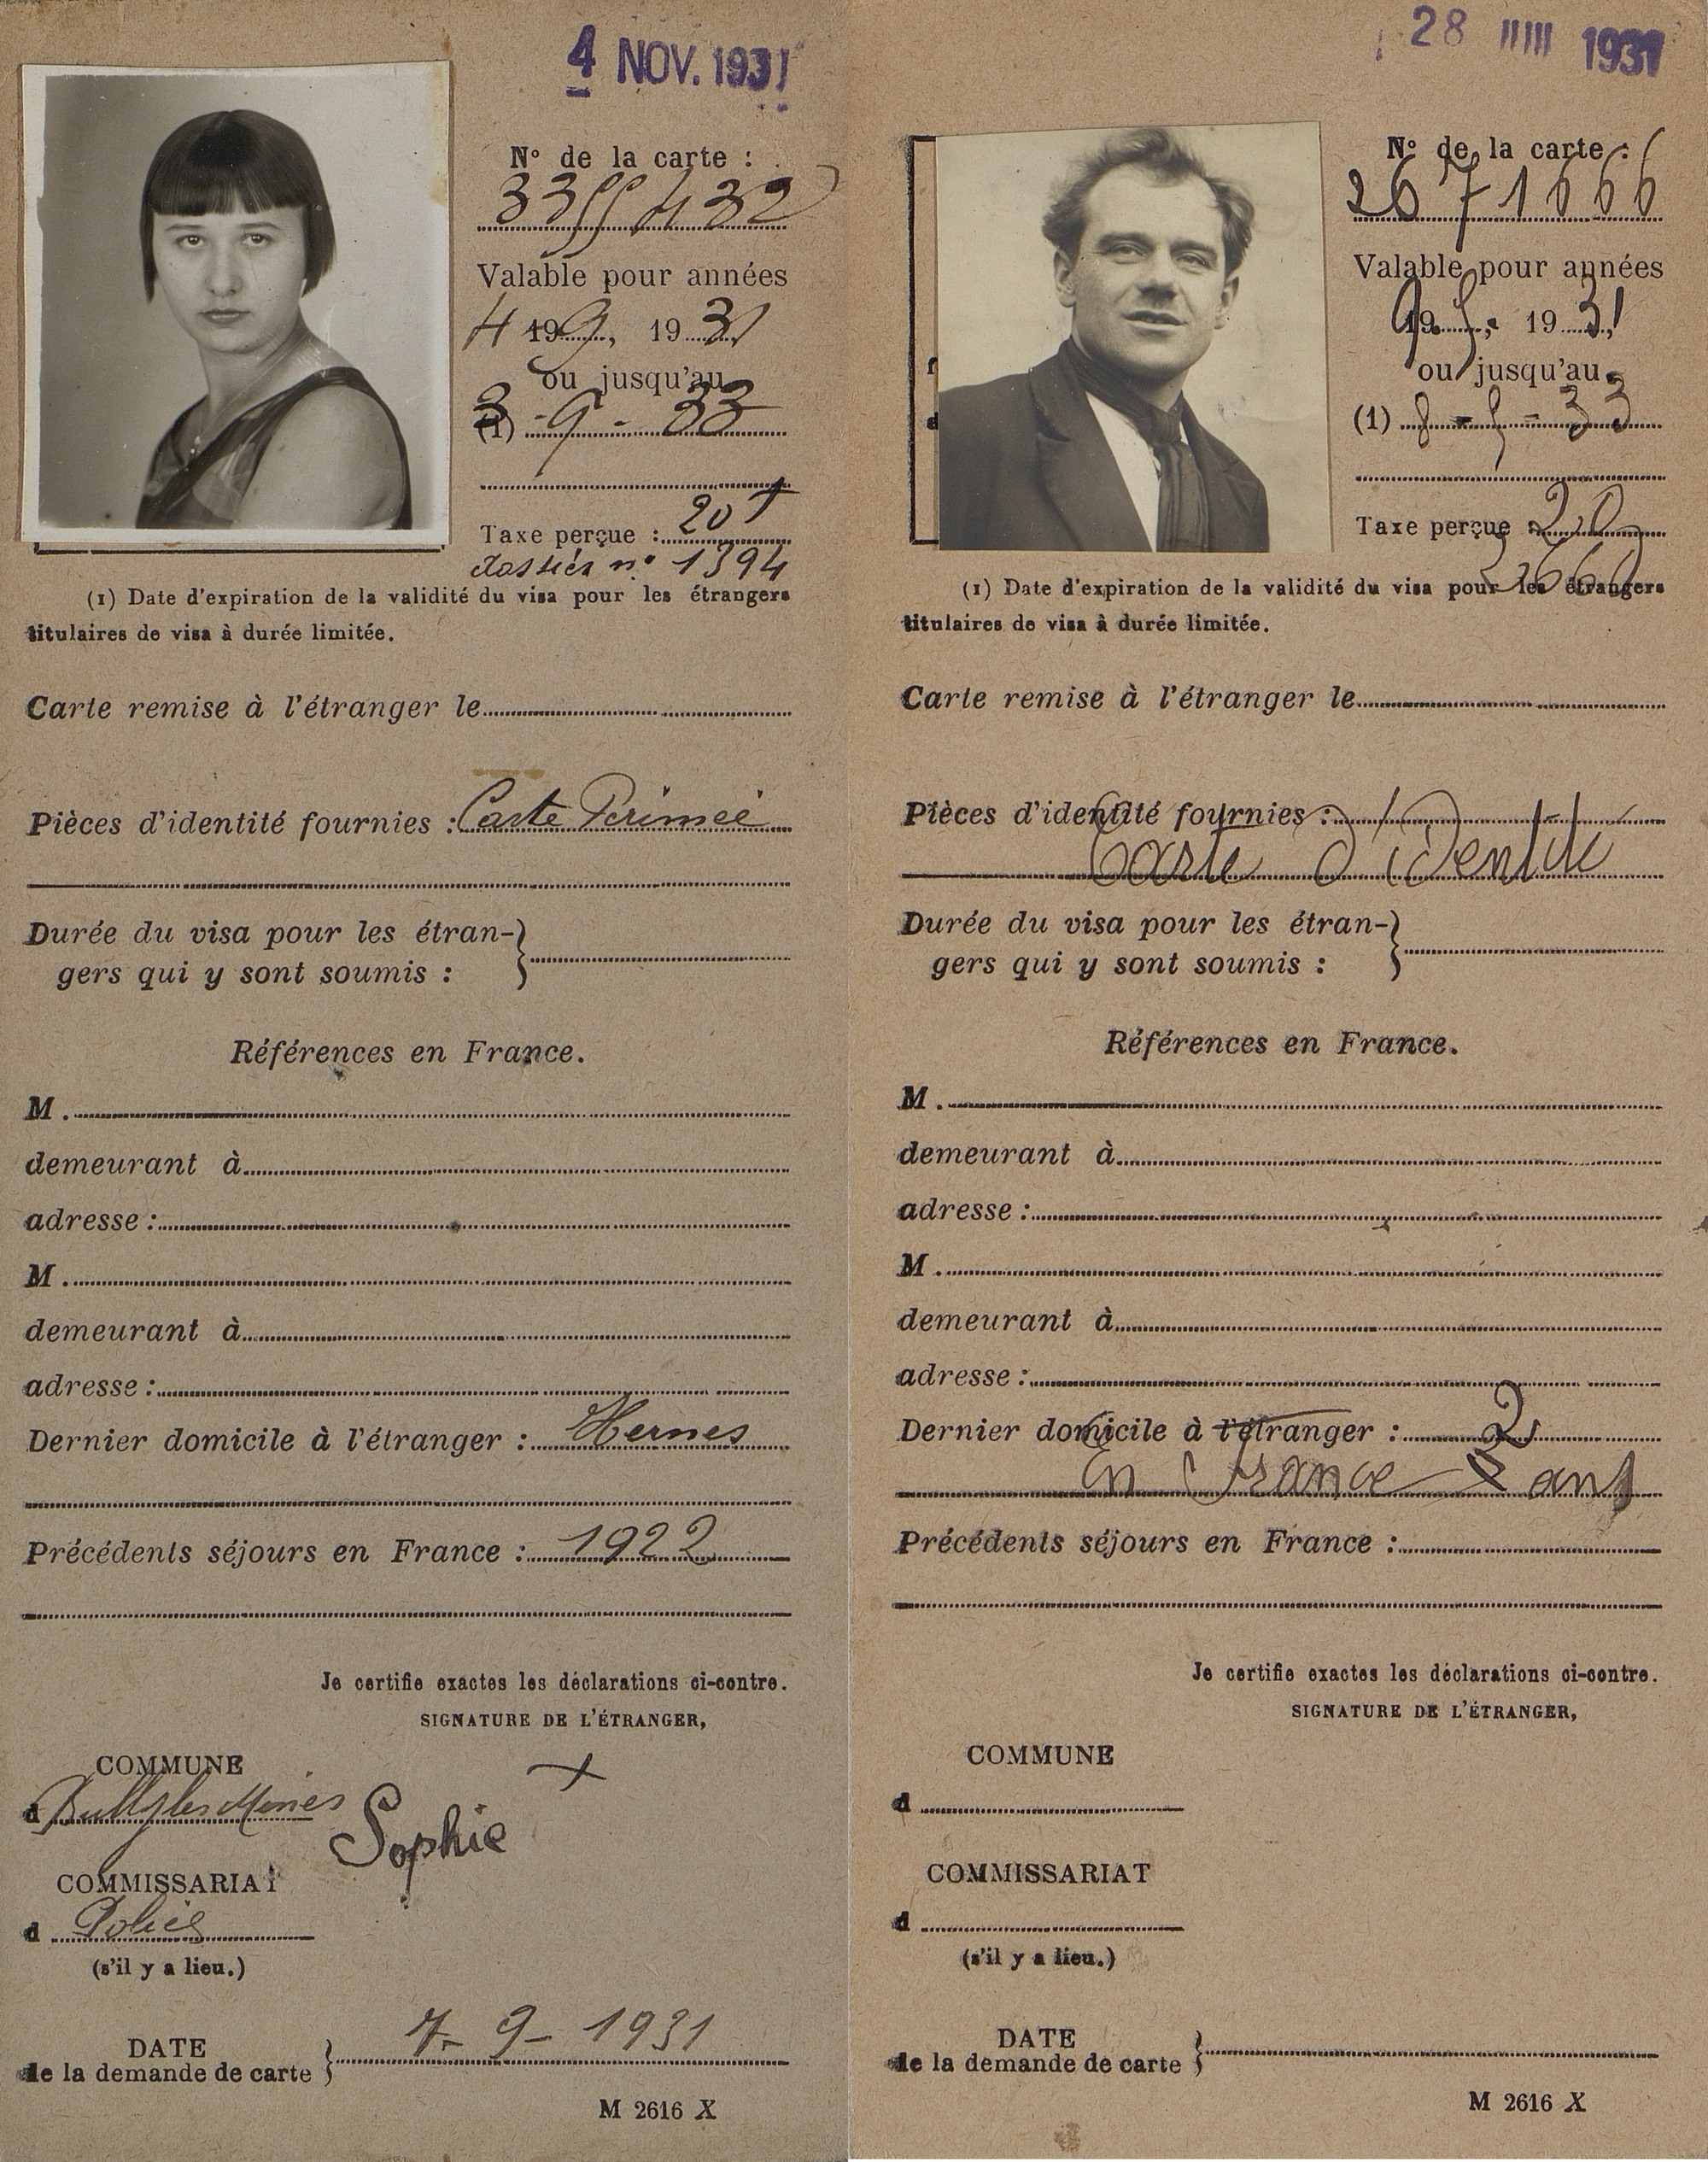 4 NOV. 1931
N° de la carte :
3355432
Valable pour années
4 19 9, 19 31
ou jusqu'au
3 (1) - 9 - 33
Taxe perçue : 20 f
dossier n° 1394
(1) Date d'expiration de la validité du visa pour les étrangers
titulaires de visa à durée limitée.
Carte remise à l'étranger le
Pièces d'identité fournies : Carte Périmée
Durée du visa pour les étran-
gers qui y sont soumis :
Références en France.
M.
demeurant à
adresse :
M.
demeurant à
adresse :
Dernier domicile à l'étranger : Hernes
Précédents séjours en France : 1922
Je certifie exactes les déclarations ci-contre.
SIGNATURE DE L'ÉTRANGER,
COMMUNE
d Bully les Mines
Sophie
COMMISSARIAT
d Police
(s'il y a lieu.)
DATE
de la demande de carte
4-9-1931
M 2616 X
28 1931
N° de la carte :
2671666
Valable pour années
9 19 5, 19 31
ou jusqu'au
(1) 8 - 5 - 33
Taxe perçue : 20
(1) Date d'expiration de la validité du visa pour les étrangers
titulaires de visa à durée limitée.
Carte remise à l'étranger le
Pièces d'identité fournies :
Carte d'identité
Durée du visa pour les étran-
gers qui y sont soumis :
Références en France.
M.
demeurant à
adresse :
M.
demeurant à
adresse :
Dernier domicile à l'étranger : 2
En France ans
Précédents séjours en France :
Je certifie exactes les déclarations ci-contre.
SIGNATURE DE L'ÉTRANGER,
COMMUNE
d
COMMISSARIAT
d
(s'il y a lieu.)
DATE
de la demande de carte
M 2616 X